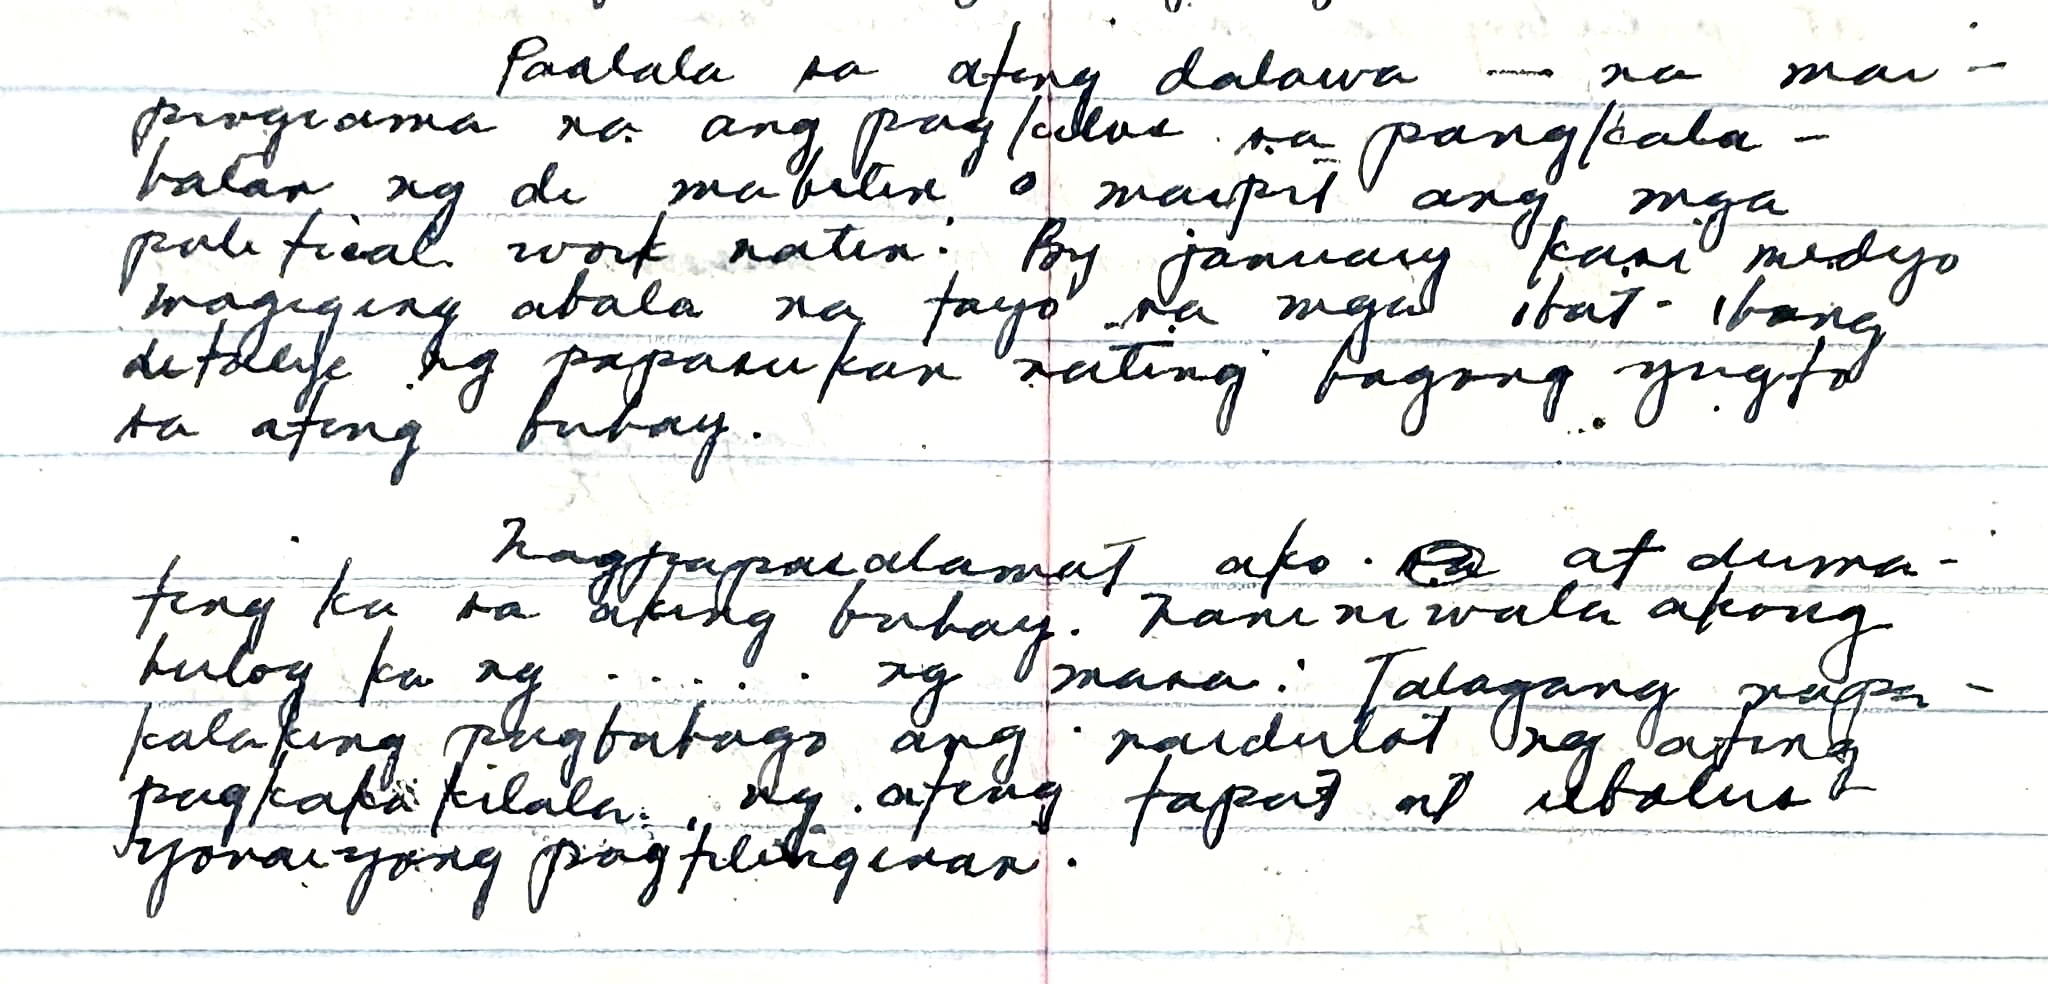 Paalala sa ating dalawa — na mai-
programa na ang pagkilos sa pangkala-
hatan ng di mabitin o maipit ang mga
political work natin. By january kasi medyo
magiging abala na tayo sa mga ibat-ibang
detalye ng papasukan nating bagong yugto
sa ating buhay.
Nagpapasalamat ako at duma-
ting ka sa aking buhay. Naniniwala akong
hulog ka ng ..... ng masa. Talagang napa-
kalaking pagbabago ang naidulot ng ating
pagkakakilala, ng ating tapat at rebolus-
yonaryong pagtitinginan.